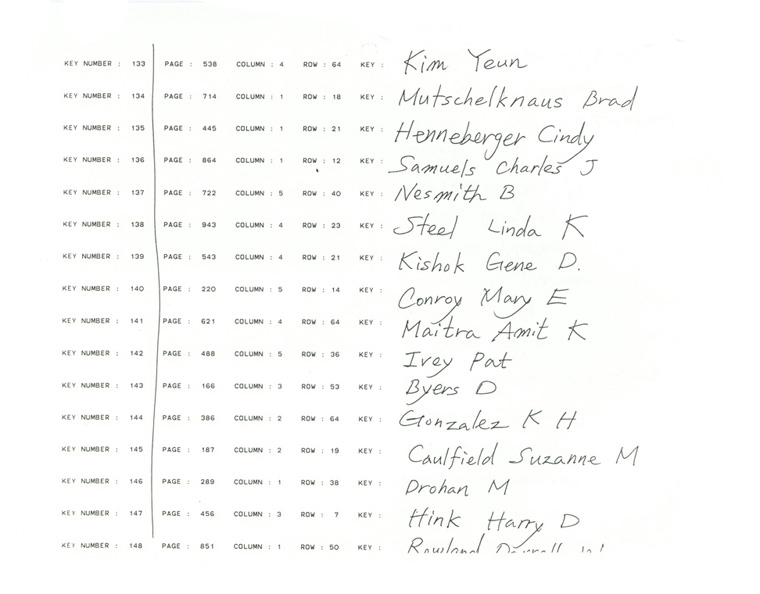 KEY NUMBER : 133 PAGE : 538 COLUMN : 4 ROW : 64 KEY : Kim Yeun
KEY NUMBER : 134 PAGE : 714 COLUMN : 1 ROW : 18 KEY : Mutschelknaus Brad
KEY NUMBER : 135 PAGE : 445 COLUMN : 1 ROW : 21 KEY : Henneberger Cindy
KEY NUMBER : 136 PAGE : 864 COLUMN : 1 ROW : 12 KEY : Samuels Charles J
KEY NUMBER : 137 PAGE : 722 COLUMN : 5 ROW : 40 KEY : Nesmith B
KEY NUMBER : 138 PAGE : 943 COLUMN : 4 ROW : 23 KEY : Steel Linda K
KEY NUMBER : 139 PAGE : 543 COLUMN : 4 ROW : 21 KEY : Kishok Gene D.
KEY NUMBER : 140 PAGE : 220 COLUMN : 5 ROW : 14 KEY : Conroy Mary E
KEY NUMBER : 141 PAGE : 621 COLUMN : 4 ROW : 64 KEY : Maitra Amit K
KEY NUMBER : 142 PAGE : 488 COLUMN : 5 ROW : 36 KEY : Ivey Pat
KEY NUMBER : 143 PAGE : 166 COLUMN : 3 ROW : 53 KEY : Byers D
KEY NUMBER : 144 PAGE : 386 COLUMN : 2 ROW : 64 KEY : Gonzalez K H
KEY NUMBER : 145 PAGE : 187 COLUMN : 2 ROW : 19 KEY : Caulfield Suzanne M
KEY NUMBER : 146 PAGE : 289 COLUMN : 1 ROW : 38 KEY : Drohan M
KEY NUMBER : 147 PAGE : 456 COLUMN : 3 ROW : 7 KEY : Hink Harry D
KEY NUMBER : 148 PAGE : 851 COLUMN : 1 ROW : 50 KEY : Rowland